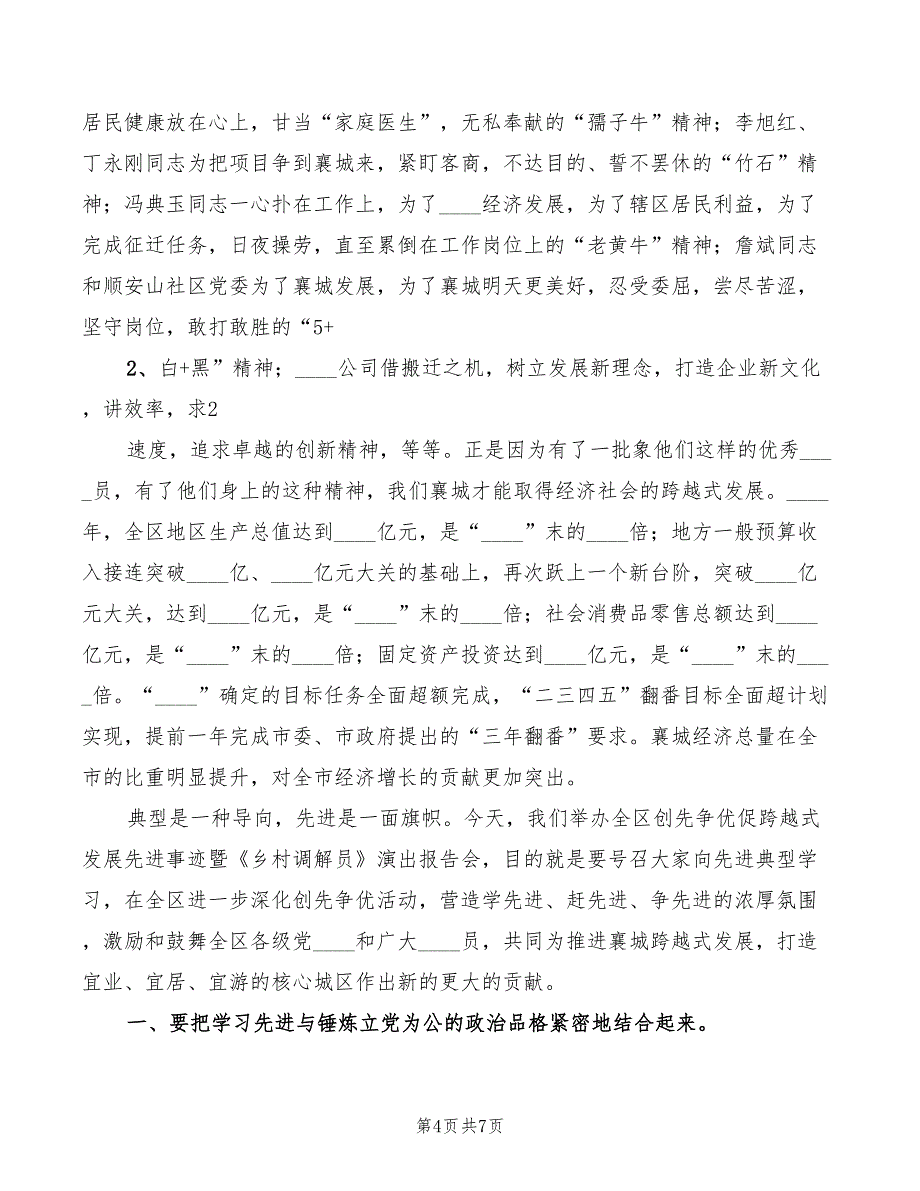 居民健康放在心上，甘当“家庭医生”，无私奉献的“孺子牛”精神；李旭红、
丁永刚同志为把项目争到襄城来，紧盯客商，不达目的、誓不罢休的“竹石”精
神；冯典玉同志一心扑在工作上，为了____经济发展，为了辖区居民利益，为了
完成征迁任务，日夜操劳，直至累倒在工作岗位上的“老黄牛”精神；詹斌同志
和顺安山社区党委为了襄城发展，为了襄城明天更美好，忍受委屈，尝尽苦涩，
坚守岗位，敢打敢胜的“5+
2、白+黑”精神；____公司借搬迁之机，树立发展新理念，打造企业新文化
，讲效率，求2
速度，追求卓越的创新精神，等等。正是因为有了一批象他们这样的优秀___
_员，有了他们身上的这种精神，我们襄城才能取得经济社会的跨越式发展。____
年，全区地区生产总值达到____亿元，是“____”末的____倍；地方一般预算收
入接连突破____亿、____亿元大关的基础上，再次跃上一个新台阶，突破____亿
元大关，达到____亿元，是“____”末的____倍；社会消费品零售总额达到____
亿元，是“____”末的____倍；固定资产投资达到____亿元，是“____”末的___
_倍。“____”确定的目标任务全面超额完成，“二三四五”翻番目标全面超计划
实现，提前一年完成市委、市政府提出的“三年翻番”要求。襄城经济总量在全
市的比重明显提升，对全市经济增长的贡献更加突出。
典型是一种导向，先进是一面旗帜。今天，我们举办全区创先争优促跨越式
发展先进事迹暨《乡村调解员》演出报告会，目的就是要号召大家向先进典型学
习，在全区进一步深化创先争优活动，营造学先进、赶先进、争先进的浓厚氛围
，激励和鼓舞全区各级党____和广大____员，共同为推进襄城跨越式发展，打造
宜业、宜居、宜游的核心城区作出新的更大的贡献。
一、要把学习先进与锤炼立党为公的政治品格紧密地结合起来。
第4页 共7页